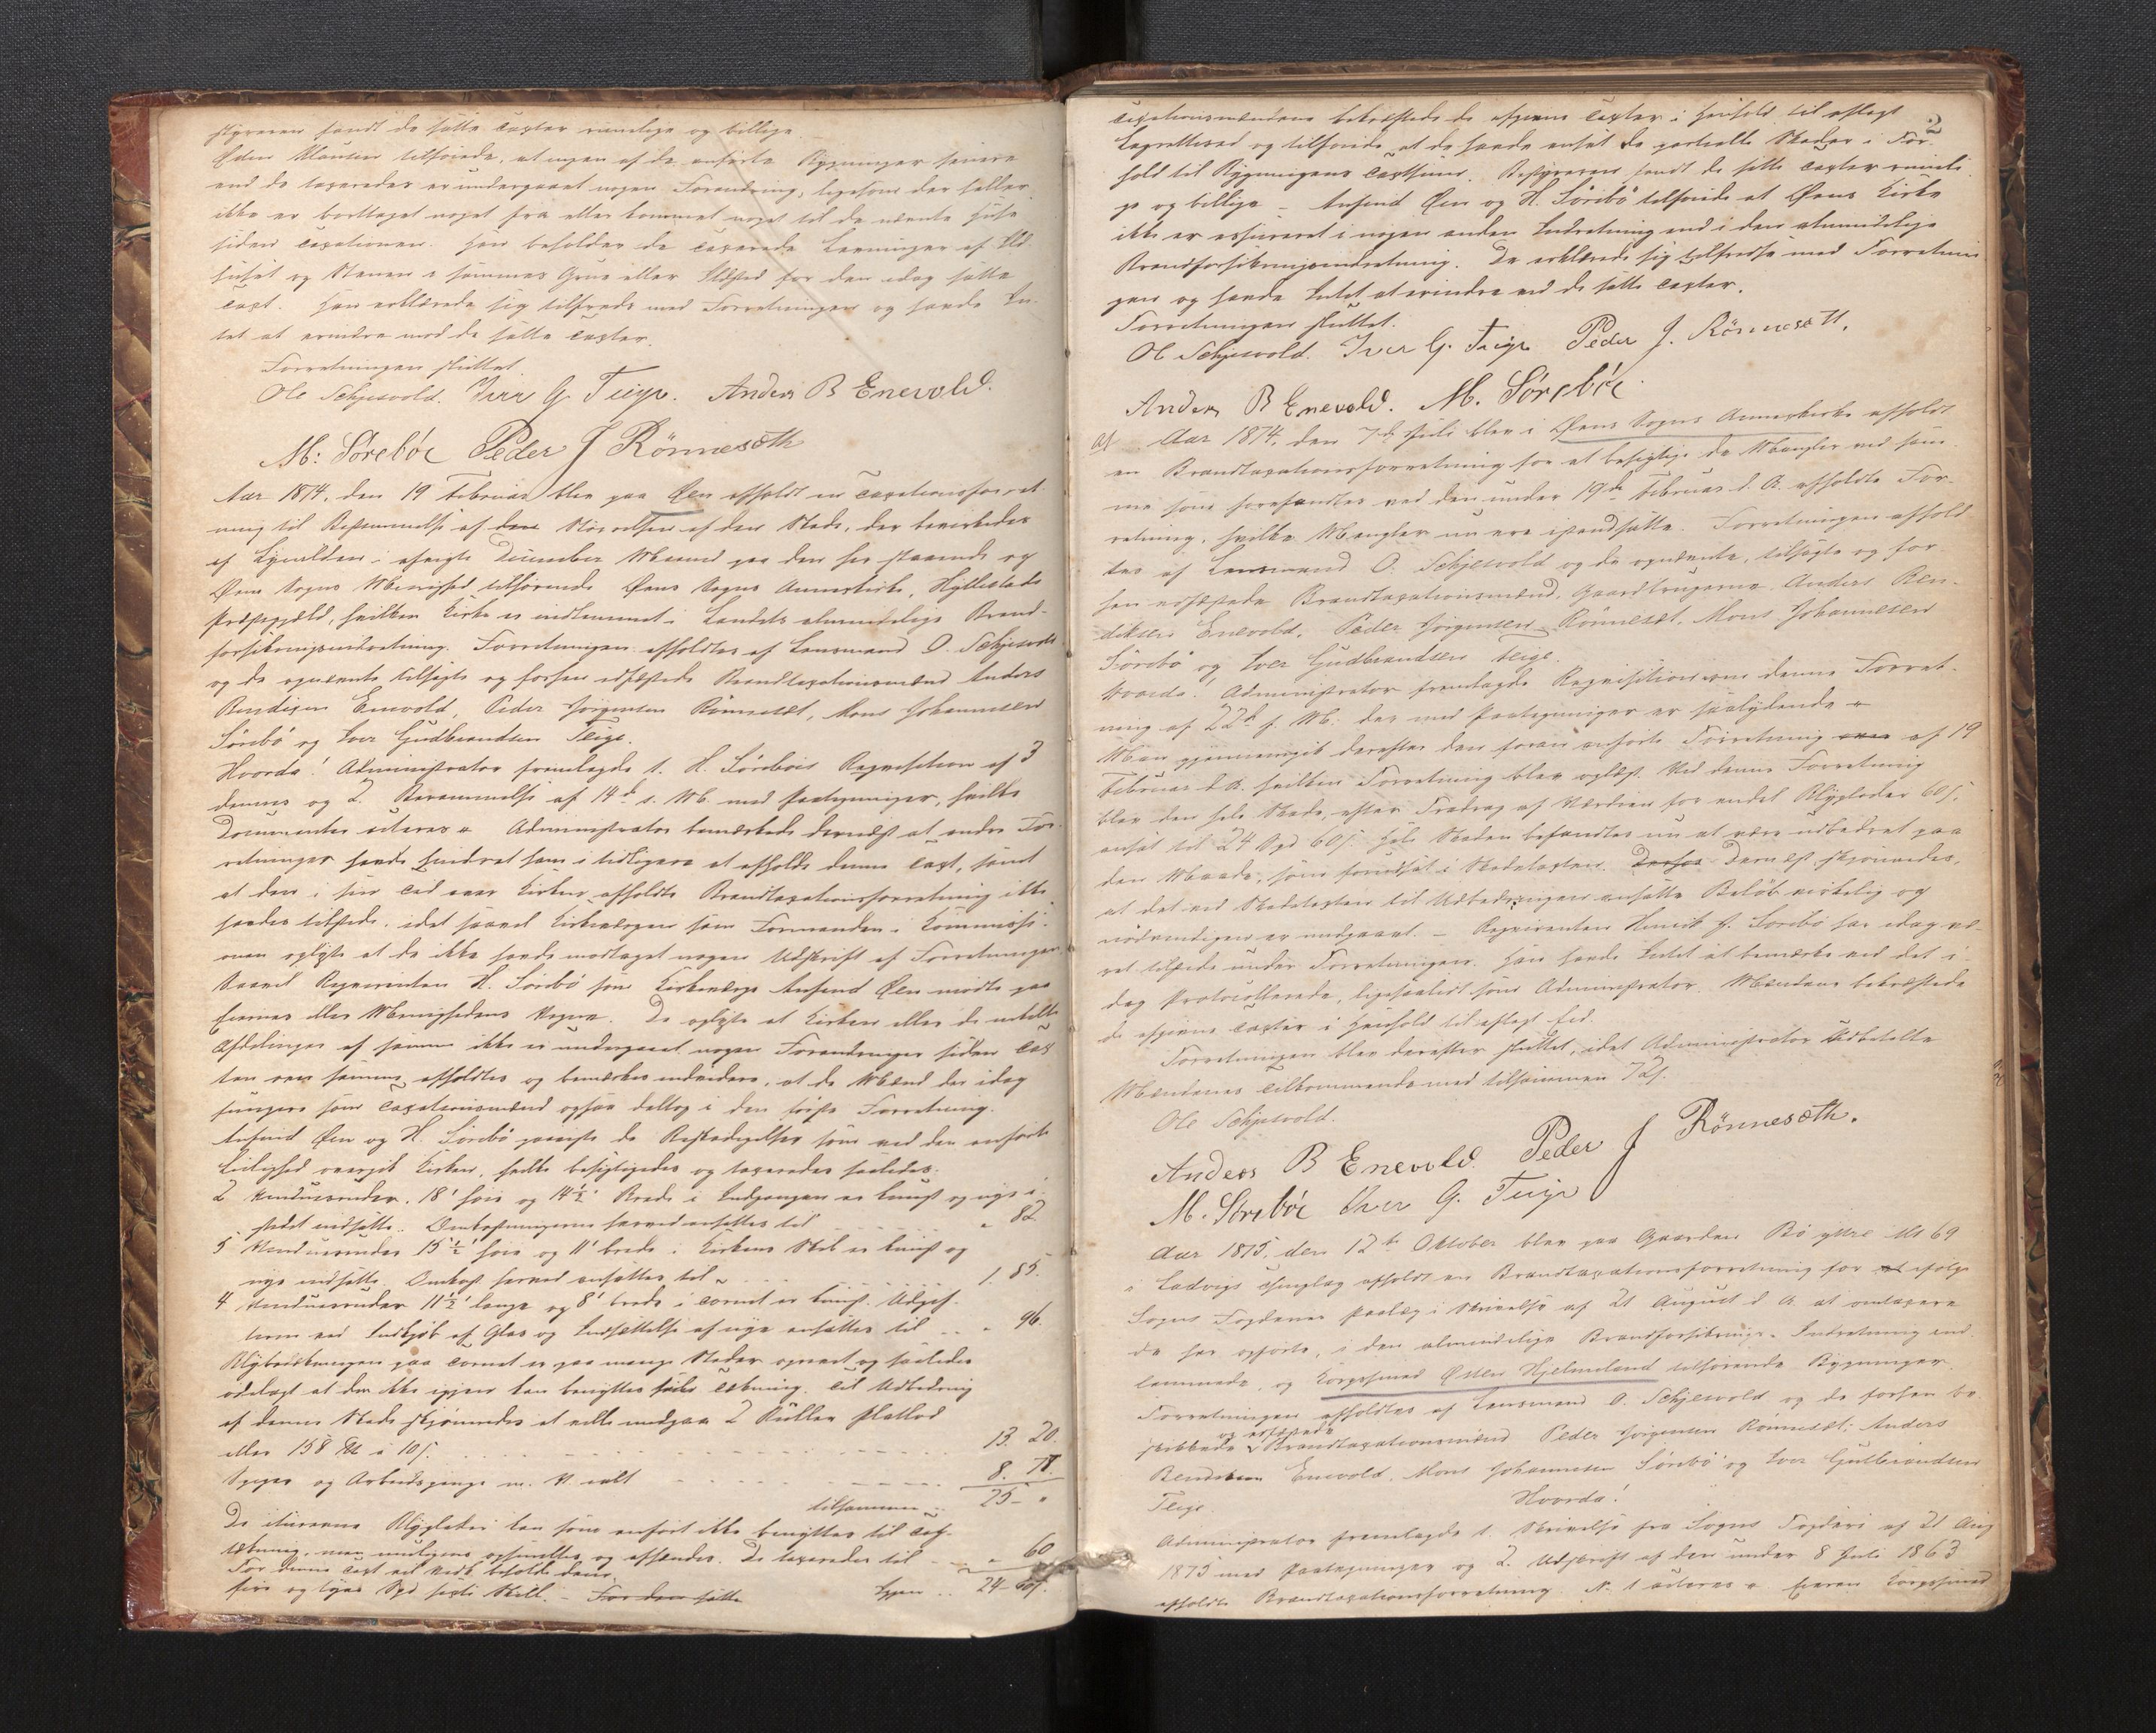 styreren fandt de satte Taxter rimelige og billige.
Østen Klausen tilføiede, at ingen af de anførte Bygninger senere
end de taxeredes er undergaaet nogen Forandring, ligesom der heller
ikke er borttaget noget fra eller kommet noget til de nævnte Huse
siden Taxationen. Han beholder de taxerede Levninger af Ild-
huset og Stenen i sammes Grue eller Ildsted for den idag satte
Taxt. Han erklærede sig tilfreds med Forretningen og havde In-
tet at erindre mod de satte Taxter.
Forretningen sluttet.
Ole Schjesvold. Iver G. Teige. Anders B Enevold.
M: Sørebøe Peder J Rönnesæth
Aar 1874, den 19 Februar blev paa Øen afholdt en Taxationsforret-
ning til Bestemmelse af den Størrelsen af den Skade, der bevirkedes
af Lynilden i afvigte December Maaned paa den her staaende og
Øens Sogns Menighed tilhørende Øens Sogns Annexkirke, Hyllestads
Præstegjæld, hvilken Kirke er indlemmet i Landets almindelige Brand-
forsikringsindretning. Forretningen afholdtes af Lensmand O. Schjesvold
og de opnævnte tilsagte og forhen edfæstede Brandtaxationsmænd Anders
Bendixen Enevold, Peder Jørgensen Rönneset, Mons Johannesen
Sörebö og Iver Gudbrandsen Teige.
Hvorda! Administrator fremlagde 1. H. Sörebøs Requisition af 3
dennes og 2. Berammelse af 14de s. M. med Paategninger, hvilke
Documenter acteres. Administrator bemærkede dernæst at andre For-
retninger havde hindret ham i tidligere at afholde denne Taxt, samt
at den i sin Tid over Kirken afholdte Brandtaxationsforretning ikke
havdes tilstede, idet saavel Kirkeværgen som Formanden i Kommissi-
onen oplyste at de ikke havde modtaget nogen Udskrift af Forretningen.
Saavel Requirenten H. Sörebö som Kirkeværge Anfind Øen mødte paa
Eiernes eller Menighedens Vegne. De oplyste at Kirken eller de enkelte
Afdelinger af samme ikke er undergaaet nogen Forandringer siden Tax-
ten over samme afholdtes og bemærkes endvidere, at de Mænd der idag
fungere som Taxationsmænd ogsaa deltog i den første Forretning.
Anfind Øen og H. Sörebö paaviste de Beskadigelser som ved den anførte
Leilighed overgik Kirken, hvilke besigtigedes og taxeredes saaledes:
2 Vinduesruder, 18" høie og 14½" Brede i Indgangen er knust og nye i
stedet indsatte. Omkostningerne herved ansættes til " 82
5 Vinduesruder 15½" høie og 11" brede i Kirkens Skib er knust og
nye indsatte. Omkost. herved ansættes til 1. 85.
4 Vinduesruder 11½" lange og 8" brede i Taarnet er knust. Udgif-
terne ved Indkjøb af Glas og Indsættelse af nye ansættes til " 96.
Blybeklædningen paa Taarnet er paa mange Steder oprevet og saaledes
ødelagt at den ikke igjen kan benyttes til Tækning. Til Udbedring
af denne Skade skjønnedes at ville medgaa 2 Ruller Pladlod
eller 158 ℔ a 10 s. 13. 20.
Spiger og Arbeidspenge m. V. ialt 8. 78.
tilsammen 25 – "
De iturevne Blyplader kan som anført ikke benyttes til Tag-
tækning, men muligens opsmeltes og afhændes. De taxeredes til " 60
For denne Taxt vil Vedk. beholde dem.
fire og tyve Spd. sexti Skill. – For den satte Igjen 24 – 60 s.
2
Taxationsmændene bekræftede de afgivne Taxter i Henhold til aflagt
Lagretteed og tilføiede at de havde ansat de partielle Skader i For-
hold til Bygningens Taxtsum. Bestyreren fandt de satte Taxter rimeli-
ge og billige – Anfind Øen og H. Sörebö tilføiede at Øens Kirke
ikke er assureret i nogen anden Indretning end i den almindelige
Brandforsikringsindretning. De erklærede sig tilfredse med Forretnin-
gen og havde Intet at erindre ved de satte Taxter.
Forretningen sluttet.
Ole Schjesvold. Iver G. Teige Peder J. Rönnesæth.
Anders B Enevold. M. Sørebøe.
Aar 1874, den 7de Juli blev i Øens Sogns Annexkirke afholdt
en Brandtaxationsforretning for at besigtige de Mangler ved sam-
me som forefandtes ved den under 19de Februar d. A. afholdte For-
retning, hvilke Mangler nu ere istandsatte. Forretningen afhold-
tes af Lensmand O. Schjesvold og de opnævnte, tilsagte og for-
hen edfæstede Brandtaxationsmænd, Gaardbrugerne Anders Ben-
diksen Enevold, Peder Jörgensen Rönneset, Mons Johannesen
Sörebö og Iver Gudbrandsen Teige.
Hvorda! Administrator fremlagde Requisition om denne Forret-
ning af 22de f. M. der med Paategninger er saalydende
Man gjennemgik derefter den foran anførte Forretning over af 19
Februar d. A. hvilken Forretning blev oplæst. Ved denne Forretning
blev den hele Skade, efter Fradrag af Værdien for endel Blyplader 60 s.
ansat til 24 Spd 60 s. Hele Skaden befandtes nu at være udbedret paa
den Maade, som forudsat i Skadetaxten. Derfor Dernæst skjønnedes,
at det ved Skadetaxten til Udbedringen ansatte Beløb virkelig og
nødvendigen er medgaaet. – Requirenten Henrik J. Sörebö har idag væ-
ret tilstede under Forretningen. Han havde Intet at bemærke ved det i-
dag Protocollerede, ligesaalidt som Administrator. Mændene bekræftede
de afgivne Taxter i Henhold til aflagt Ed.
Forretningen blev derefter sluttet, idet Administrator Udbetalte
Mændenes Tilkommende med tilsammen 72 s.
Ole Schjesvold.
Anders B Enevold. Peder J Rönnesæth.
M. Sørebøe Iver G. Teige
Aar 1875, den 12te Oktober blev paa Gaarden Bö yttre M 69
i Ladvigs Thinglag afholdt en Brandtaxationsforretning for at ifølge
Sogns Fogderies Paalæg i Skrivelse af 21 August d. A. at omtaxere
de her opførte, i den almindelige Brandforsikrings-Indretning ind-
lemmede, og Korpssmed Østen Hjelmeland tilhørende Bygninger.
Forretningen afholdtes af Lensmand O. Schjesvold og de forhen be-
skikkede og edfæstede Brandtaxationsmænd Peder Jörgensen Rönneset, Anders
Bendiksen Enevold, Mons Johannesen Sörebö og Iver Gulbrandsen
Teige. Hvorda!
Administrator fremlagde 1. Skrivelse fra Sogns Fogderi af 21 Aug
1875 med Paategninger og 2. Udskrift af den under 8 Juli 1863
afholdte Brandtaxationsforretning. N. 1 acteres. Eieren Korpssmed